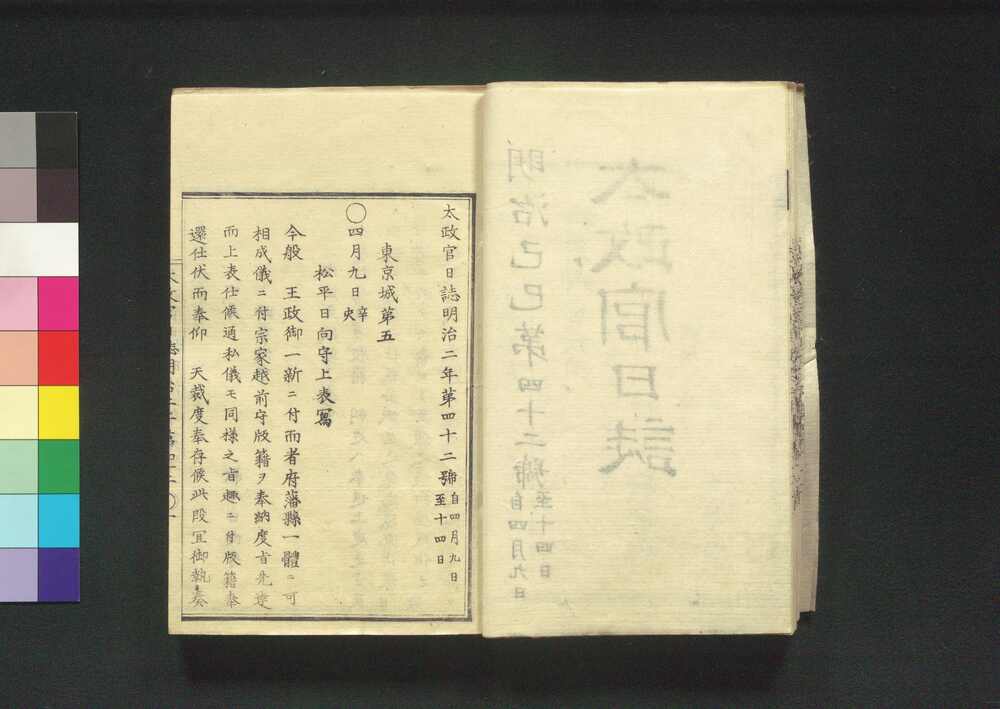 太政官日誌明治二年第四十二號 自四月九日 至十四日
東京城第五
〇四月九日 辛亥
松平日向守上表寫
今般 王政御一新ニ付而者府藩縣一體ニ可
相成儀ニ付宗家越前守版籍ヲ奉納度旨先達
而上表仕候通私儀モ同様之旨趣ニ付版籍奉
還仕伏而奉仰 天裁度奉存候此段宜御執奏